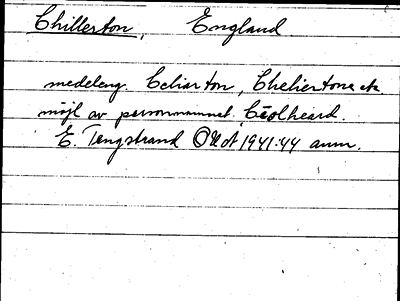 Chillerton, England
medeleng. Celiarton, Cheliertone etc
möjl av personnamnet Cēolheard.
E. Tengstrand 1941:44 anm.